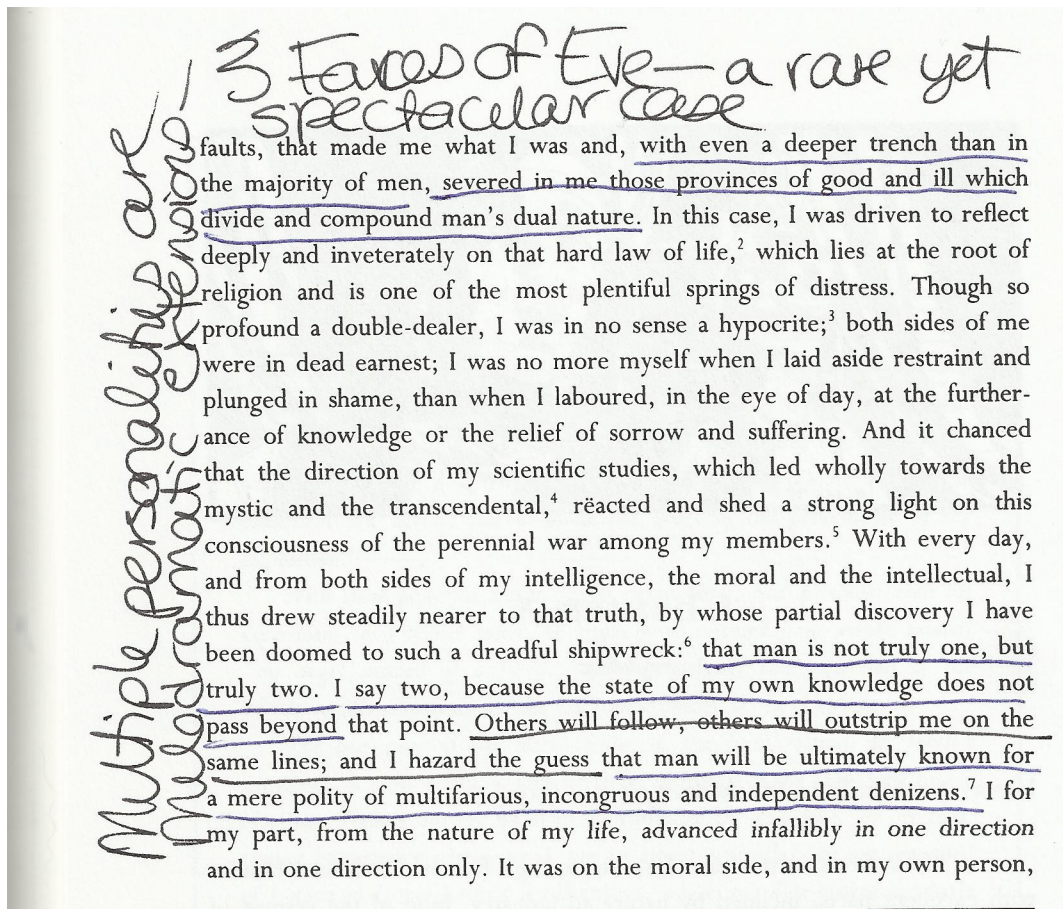 3 Faces of Eve — a rare yet
spectacular case
Multiple personalities are
melodramatic extensions —
faults, that made me what I was and, with even a deeper trench than in
the majority of men, severed in me those provinces of good and ill which
divide and compound man's dual nature. In this case, I was driven to reflect
deeply and inveterately on that hard law of life,² which lies at the root of
religion and is one of the most plentiful springs of distress. Though so
profound a double-dealer, I was in no sense a hypocrite;³ both sides of me
were in dead earnest; I was no more myself when I laid aside restraint and
plunged in shame, than when I laboured, in the eye of day, at the further-
ance of knowledge or the relief of sorrow and suffering. And it chanced
that the direction of my scientific studies, which led wholly towards the
mystic and the transcendental,⁴ rëacted and shed a strong light on this
consciousness of the perennial war among my members.⁵ With every day,
and from both sides of my intelligence, the moral and the intellectual, I
thus drew steadily nearer to that truth, by whose partial discovery I have
been doomed to such a dreadful shipwreck:⁶ that man is not truly one, but
truly two. I say two, because the state of my own knowledge does not
pass beyond that point. Others will follow, others will outstrip me on the
same lines; and I hazard the guess that man will be ultimately known for
a mere polity of multifarious, incongruous and independent denizens.⁷ I for
my part, from the nature of my life, advanced infallibly in one direction
and in one direction only. It was on the moral side, and in my own person,